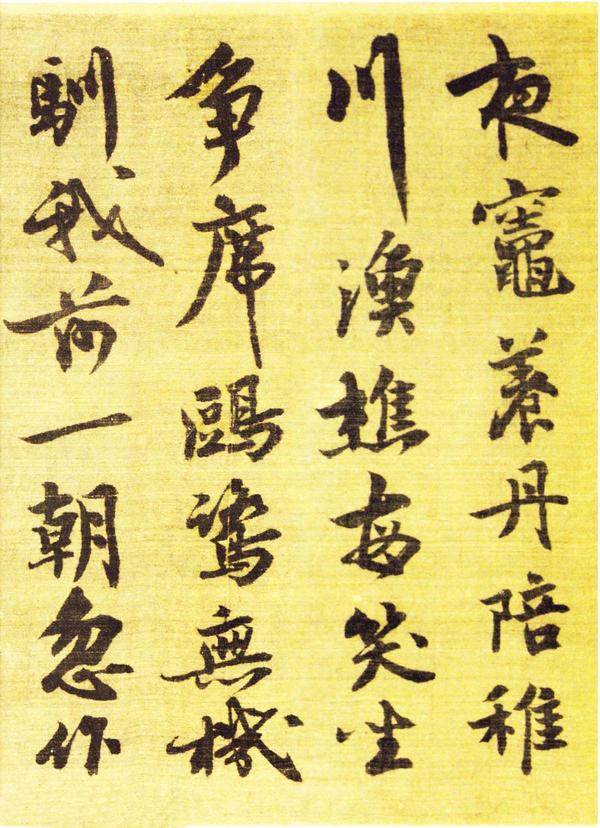 夜竈養丹陪稚
川漁樵每笑坐
争席鷗鷺無機
馴我前一朝忽作